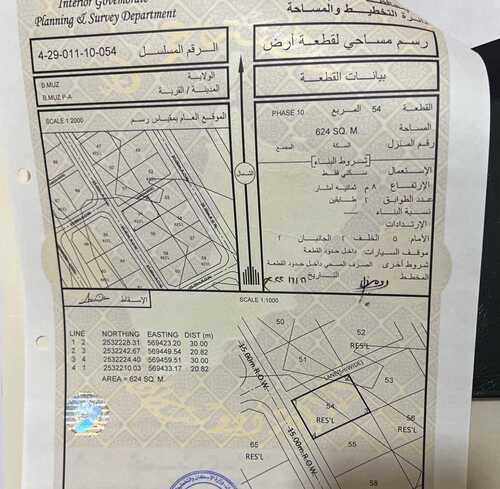 Interior Governorate
Planning & Survey Department
دائرة التخطيط والمساحة
4-29-011-10-054
الرقم المسلسل
رسم مساحي لقطعة أرض
B.MUZ
الولاية
B.MUZ P-A
المدينة / القرية
بيانات القطعة
SCALE 1:2000
الموقع العام بمقياس رسم
القطعة 54 المربع PHASE 10
المساحة 624 SQ. M.
رقم المنزل السكة المجمع
شروط البناء
الشمال
الاستعمال سكني فقط
الإرتفاع ٨ م ثمانية أمتار
عدد الطوابق ٢ طابقين
نسبة البناء
الإرتدادات
الأمام ٥ الخلف ٢ الجانبان ٢
موقف السيارات داخل حدود القطعة
شروط أخرى الصرف الصحي داخل حدود القطعة
المخطط التاريخ
الإسقاط
SCALE 1:1000
LINE NORTHING EASTING DIST (m)
1 2 2532228.31 569423.20 30.00
2 3 2532242.67 569449.54 20.82
3 4 2532224.40 569459.51 30.00
4 1 2532210.03 569433.17 20.82
AREA = 624 SQ. M.
50
52
RES'L
51
15.00m R.O.W.
LANE(5mWIDE)
53
54
RES'L
56
65
RES'L
15.00m R.O.W.
55
RES'L
58